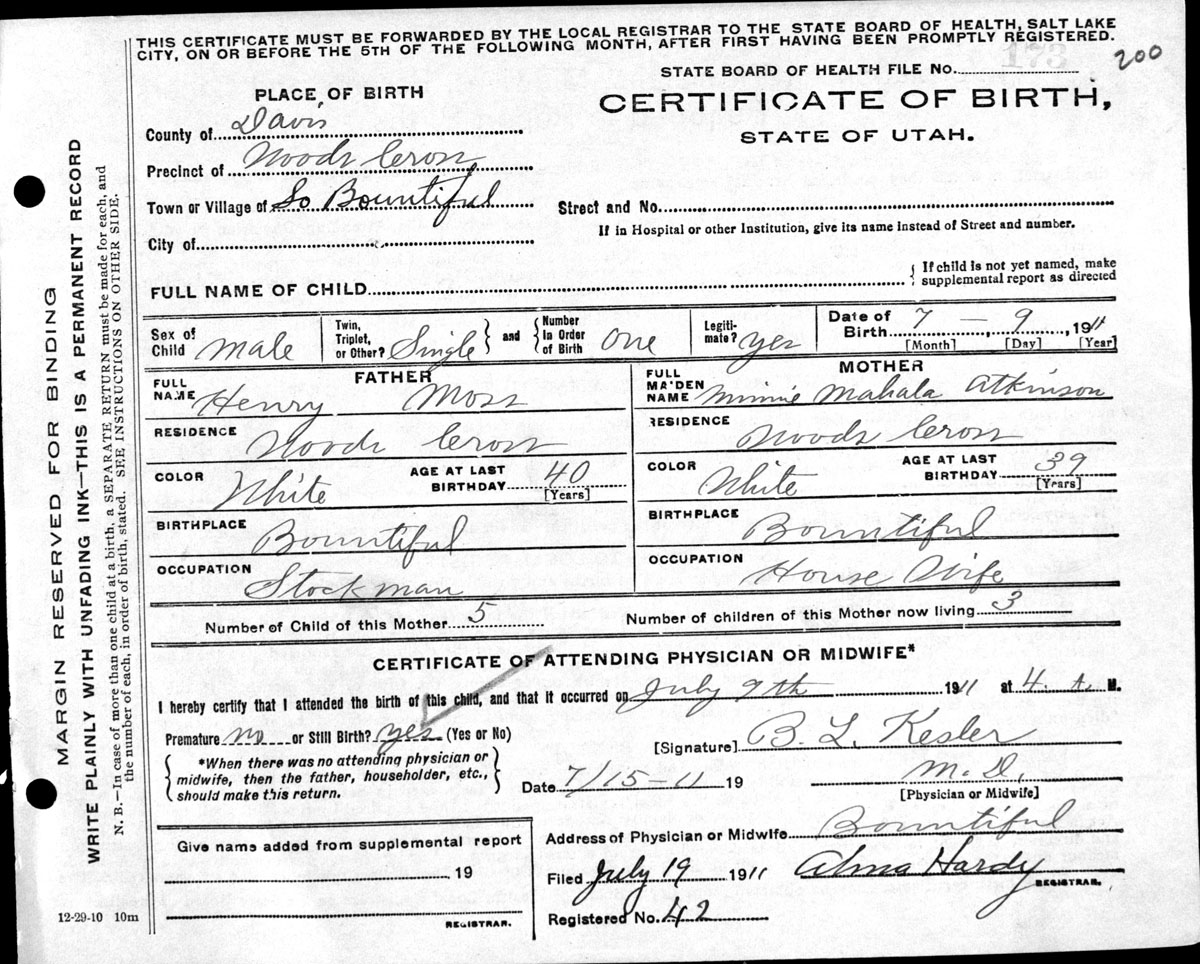 THIS CERTIFICATE MUST BE FORWARDED BY THE LOCAL REGISTRAR TO THE STATE BOARD OF HEALTH, SALT LAKE
CITY, ON OR BEFORE THE 5TH OF THE FOLLOWING MONTH, AFTER FIRST HAVING BEEN PROMPTLY REGISTERED.
173 200
STATE BOARD OF HEALTH FILE No.
PLACE OF BIRTH
CERTIFICATE OF BIRTH,
STATE OF UTAH.
County of Davis
Precinct of Woods Cross
Town or Village of So Bountiful
Street and No.
If in Hospital or other Institution, give its name instead of Street and number.
City of
FULL NAME OF CHILD { If child is not yet named, make supplemental report as directed
Sex of Child male
Twin, Triplet, or Other? Single } and { Number in Order of Birth one
Legitimate? yes
Date of Birth 7 - 9, 1911
[Month] [Day] [Year]
FATHER
FULL NAME Henry Moss
RESIDENCE Woods Cross
COLOR White AGE AT LAST BIRTHDAY 40 [Years]
BIRTHPLACE Bountiful
OCCUPATION Stockman
MOTHER
FULL MAIDEN NAME Minnie Mahala Atkinson
RESIDENCE Woods Cross
COLOR White AGE AT LAST BIRTHDAY 39 [Years]
BIRTHPLACE Bountiful
OCCUPATION House Wife
Number of Child of this Mother 5 Number of children of this Mother now living 3
CERTIFICATE OF ATTENDING PHYSICIAN OR MIDWIFE*
I hereby certify that I attended the birth of this child, and that it occurred on July 9th 1911 at 4 A. M.
Premature no or Still Birth? yes (Yes or No)
*When there was no attending physician or midwife, then the father, householder, etc., should make this return.
[Signature] B. L. Kesler
Date 7/15-11 19 M. D.
[Physician or Midwife]
Address of Physician or Midwife Bountiful
Give name added from supplemental report
19
REGISTRAR.
Filed July 19 1911 Alma Hardy
REGISTRAR.
Registered No. 42
12-29-10 10m
MARGIN RESERVED FOR BINDING
WRITE PLAINLY WITH UNFADING INK—THIS IS A PERMANENT RECORD
N. B.—In case of more than one child at a birth, a SEPARATE RETURN must be made for each, and
the number of each, in order of birth, stated. SEE INSTRUCTIONS ON OTHER SIDE.